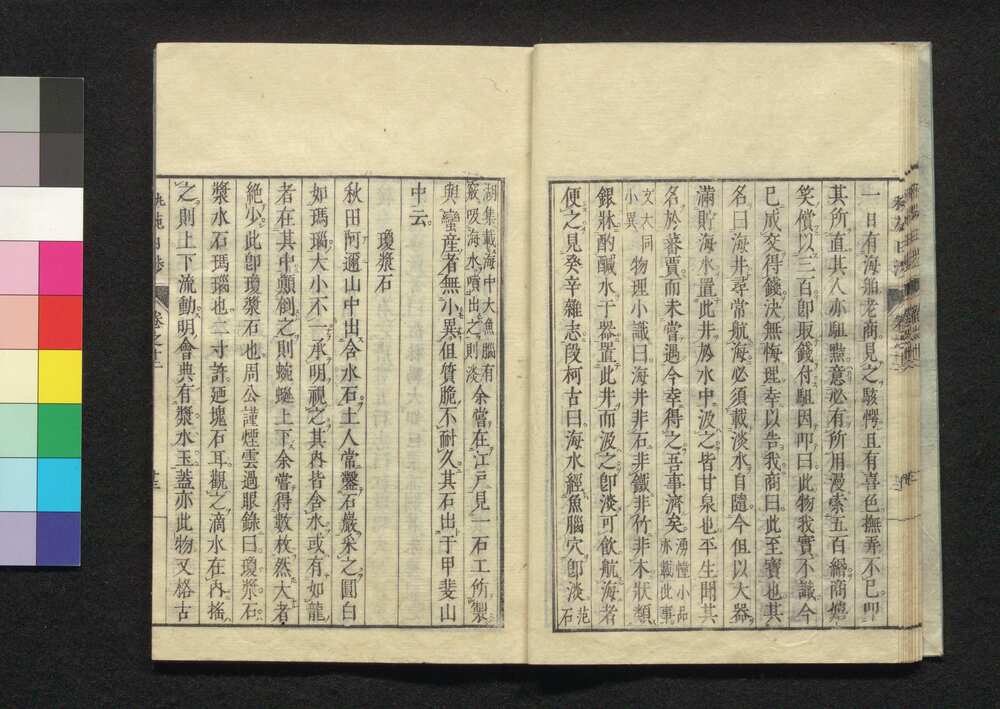 一日有海舶老商見之駭愕且有喜色撫弄不已叩
其所直其人亦駔黠意必有所用漫索五百緡商嬉
笑償以三百即取錢付駔因叩曰此物我實不識今
已成交得錢決無悔理幸以告我商曰此至寶也其
名曰海井尋常航海必須載淡水自隨今但以大器
滿貯海水置此井於水中汲之皆甘泉也平生聞其
名於蕃賈而未嘗遇今幸得之吾事濟矣湧幢小品亦載此事
文大同小異物理小識曰海井非石非鐵非竹非木狀類
銀牀酌鹹水于器置此井而汲之即淡可飲航海者
便之見癸辛雜志段柯古曰海水經魚腦穴即淡范石
湖集載海中大魚腦有竅吸海水噴出之則淡余嘗在江戸見一石工所製
與蠻産者無小異但質脆不耐久其石出于甲斐山
中云
瓊漿石
秋田阿邇山中出含水石土人常鑿石巖采之圓白
如瑪瑙大小不一承明視之其內皆含水或有如龍
者在其中顚倒之則蜿蜒上下余嘗得數枚然大者
絶少此卽瓊漿石也周公謹煙雲過眼錄曰瓊漿石
漿水石瑪瑙也二寸許廼塊石耳觀之滴水在內搖
之則上下流動明會典有漿水玉蓋亦此物又格古
卷之十二